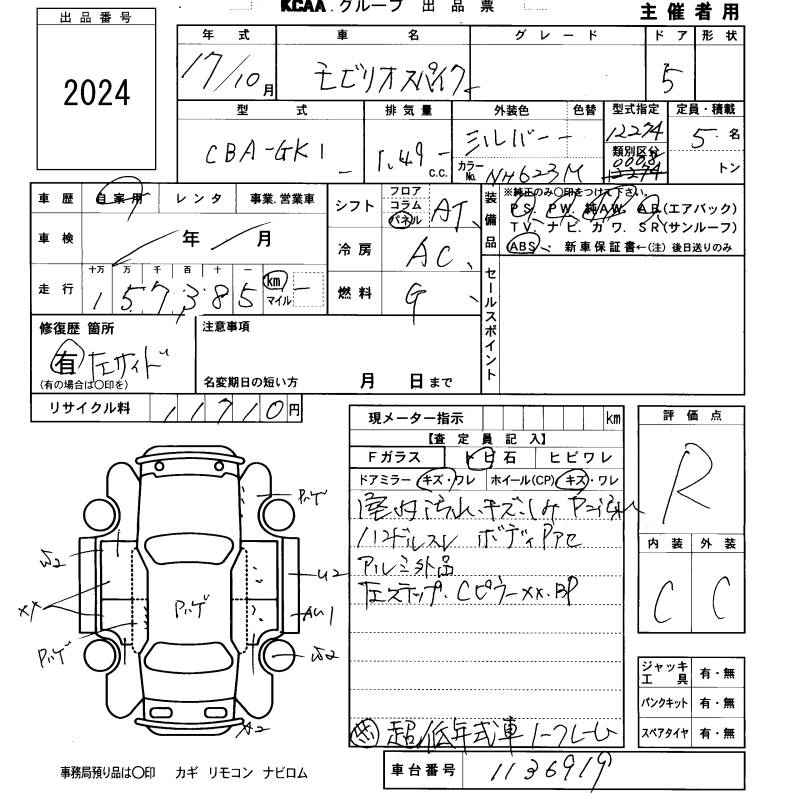 KCAA.グループ 出品票
主催者用
出品番号
2024
年式 車名 グレード ドア 形状
17/10月 モビリオスパイク 5
型式 排気量 外装色 色替 型式指定 定員・積載
CBA-GK1 1.49 c.c. シルバー 12274 5名
カラーNo. NH623M 類別区分 0008 トン
車歴 自家用 レンタ 事業.営業車
シフト フロア コラム パネル AT
装備品 ※純正のみ○印をつけて下さい。
PS. PW. 純AW. AB(エアバック)
TV. ナビ. カワ. SR(サンルーフ)
ABS、新車保証書←(注)後日送りのみ
車検 年 月
冷房 AC
走行 十万 万 千 百 十 一
157,385 km マイル
燃料 G
セールスポイント
修復歴 箇所
有 左サイド
(有の場合は○印を)
注意事項
名変期日の短い方 月 日まで
リサイクル料 11710円
現メーター指示 km
【査定員記入】
Fガラス トビ石 ヒビワレ
ドアミラー キズ・ワレ ホイール(CP) キズ・ワレ
室内汚れ、キズ、シミ
ハンドルスレ ボディ
アルミ外品
左ステップ.Cピラーxx.BP
超低年式車 ノークレーム
評価点
R
内装 外装
C C
ジャッキ工具 有・無
パンクキット 有・無
スペアタイヤ 有・無
ハゲ
U2
xx
ハゲ
ハゲ
AU1
A2
事務局預り品は○印 カギ リモコン ナビロム
車台番号 1136919